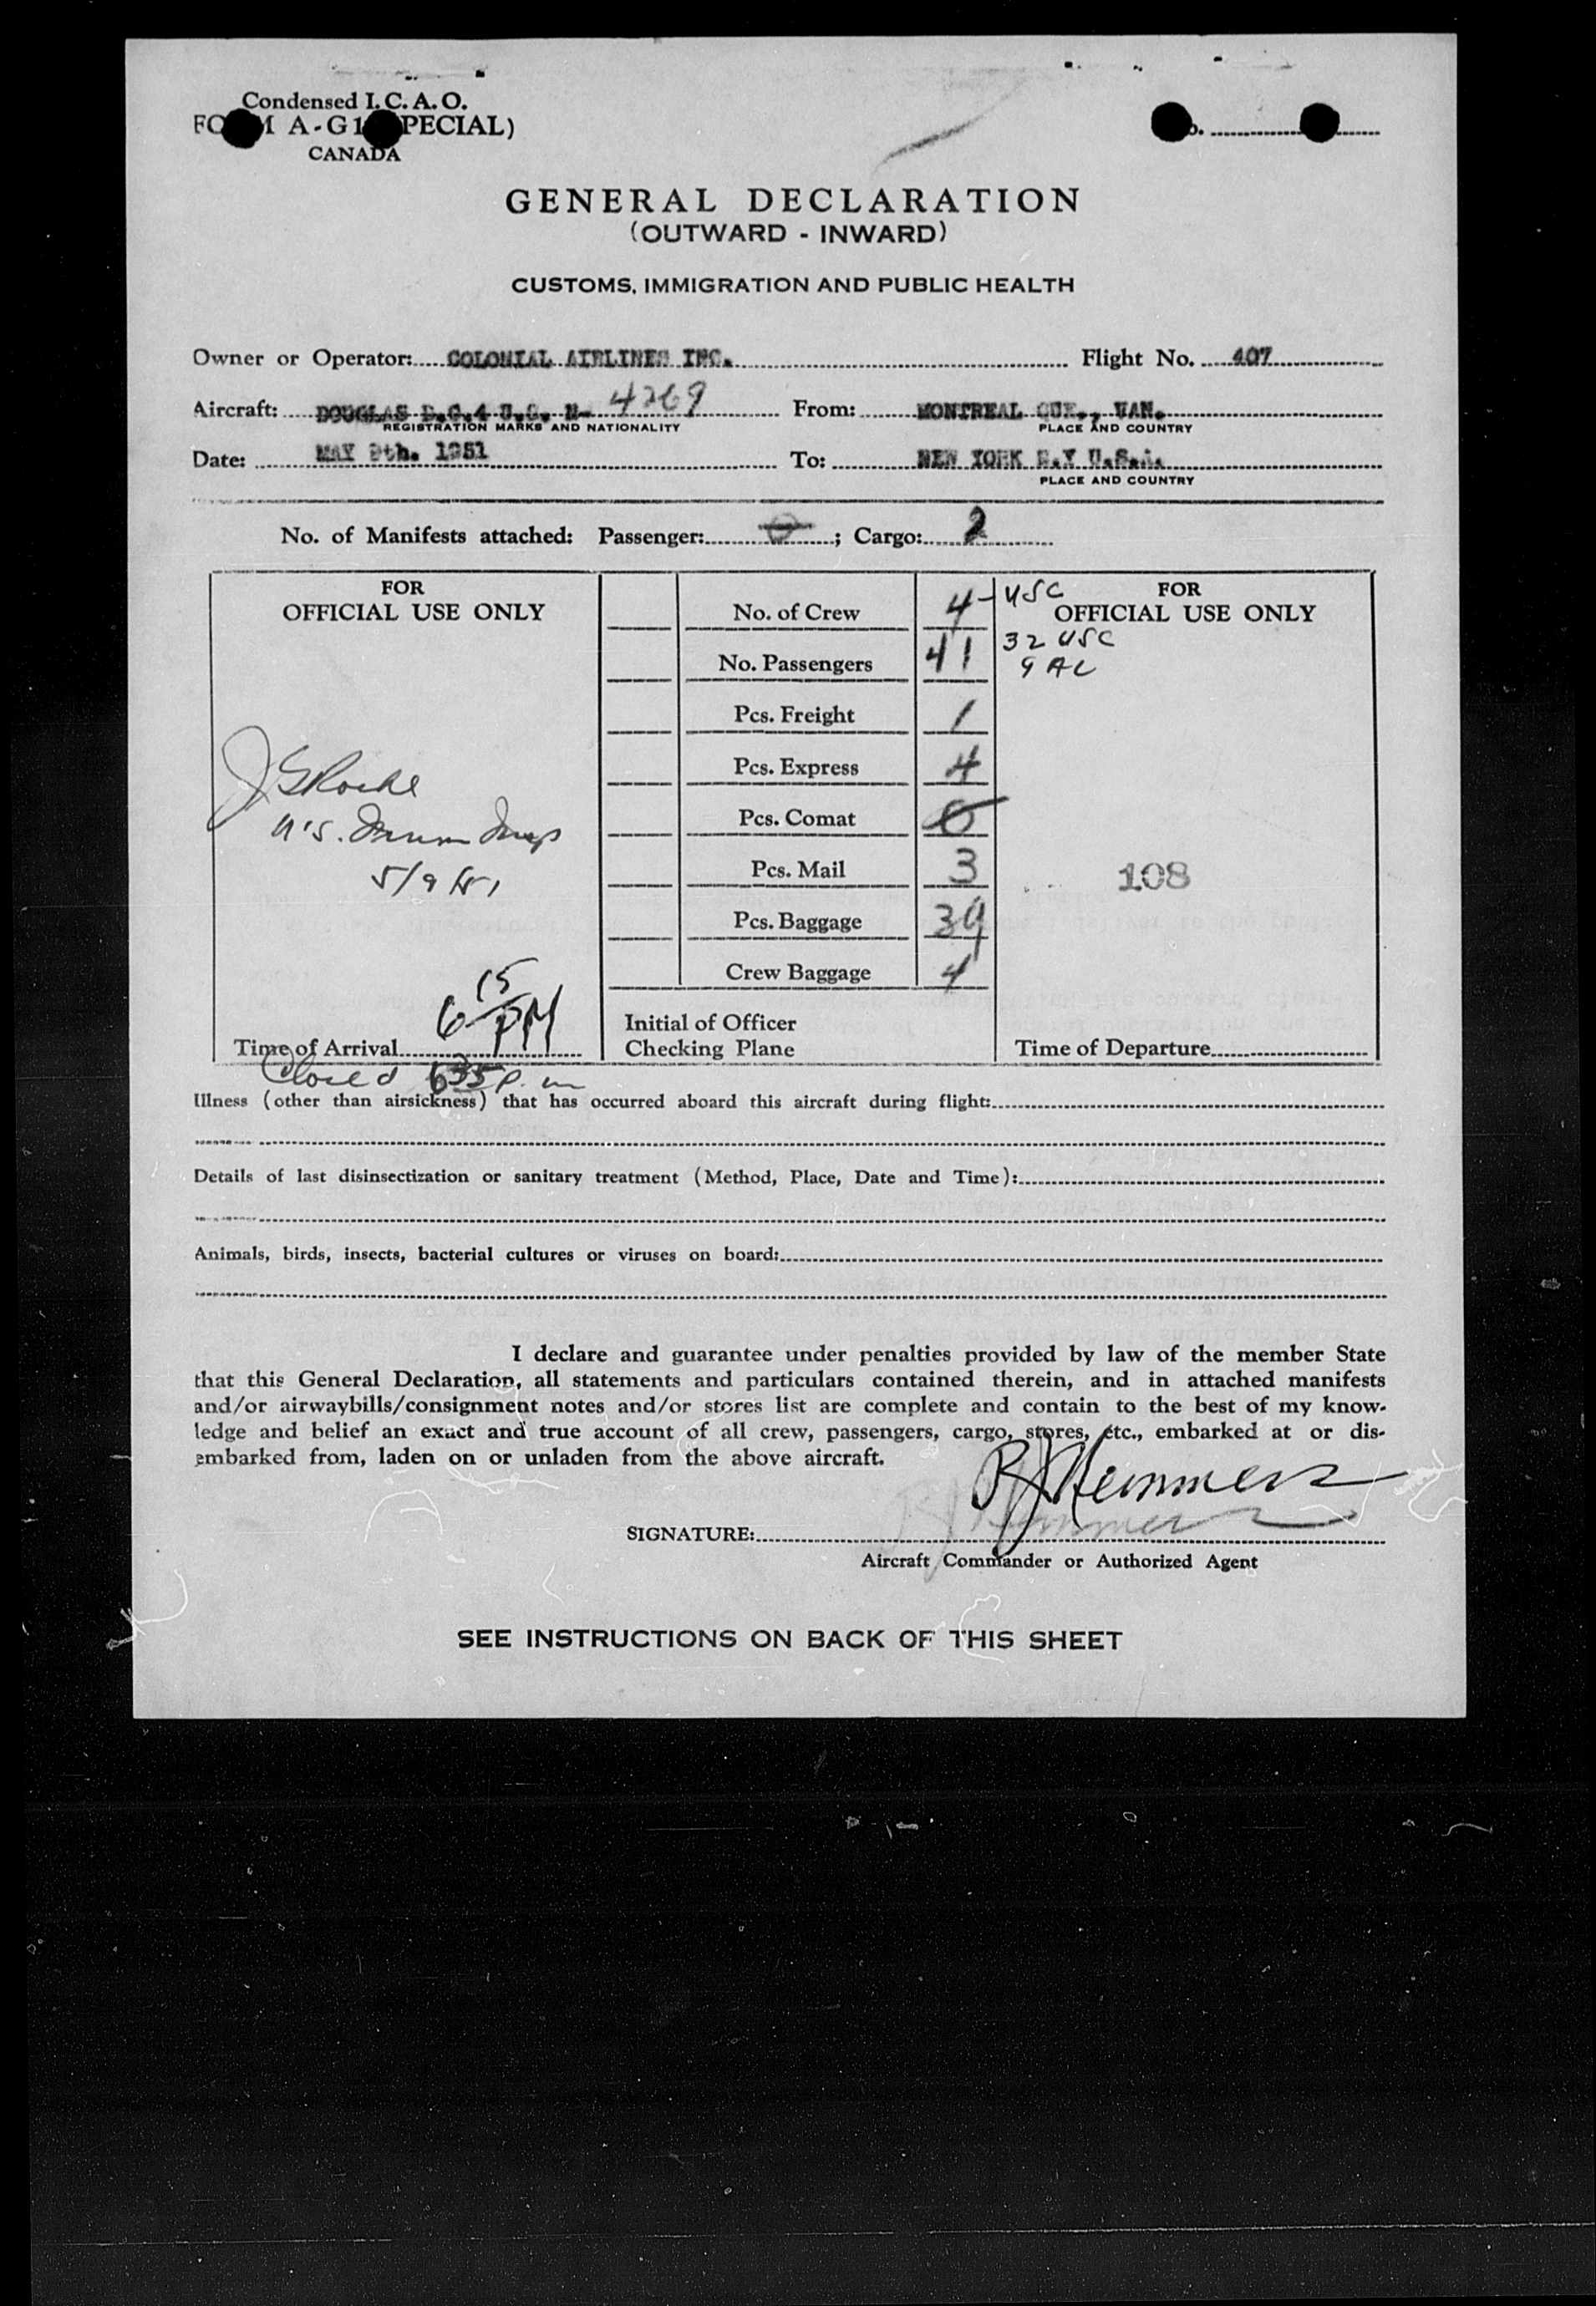 Condensed I. C. A. O.
FORM A-G1 (SPECIAL)
CANADA
No.
GENERAL DECLARATION
(OUTWARD - INWARD)
CUSTOMS, IMMIGRATION AND PUBLIC HEALTH
Owner or Operator: COLONIAL AIRLINES INC. Flight No. 407
Aircraft: DOUGLAS D.C.4 U.S. N- 4269 From: MONTREAL QUE., CAN.
REGISTRATION MARKS AND NATIONALITY PLACE AND COUNTRY
Date: MAY 9th. 1951 To: NEW YORK N.Y U.S.A.
PLACE AND COUNTRY
No. of Manifests attached: Passenger: 0 ; Cargo: 2
FOR
OFFICIAL USE ONLY
J G Roche
U.S. Immm Insp
5/9/51
6 15 PM
Time of Arrival
Closed 635 p.m
No. of Crew 4 - USC
No. Passengers 41 32 USC
9 AL
Pcs. Freight 1
Pcs. Express 4
Pcs. Comat 0
Pcs. Mail 3
Pcs. Baggage 39
Crew Baggage 4
Initial of Officer
Checking Plane
FOR
OFFICIAL USE ONLY
108
Time of Departure
Illness (other than airsickness) that has occurred aboard this aircraft during flight:
Details of last disinsectization or sanitary treatment (Method, Place, Date and Time):
Animals, birds, insects, bacterial cultures or viruses on board:
I declare and guarantee under penalties provided by law of the member State
that this General Declaration, all statements and particulars contained therein, and in attached manifests
and/or airwaybills/consignment notes and/or stores list are complete and contain to the best of my know-
ledge and belief an exact and true account of all crew, passengers, cargo, stores, etc., embarked at or dis-
embarked from, laden on or unladen from the above aircraft.
R J Hemmerz
SIGNATURE:
Aircraft Commander or Authorized Agent
SEE INSTRUCTIONS ON BACK OF THIS SHEET